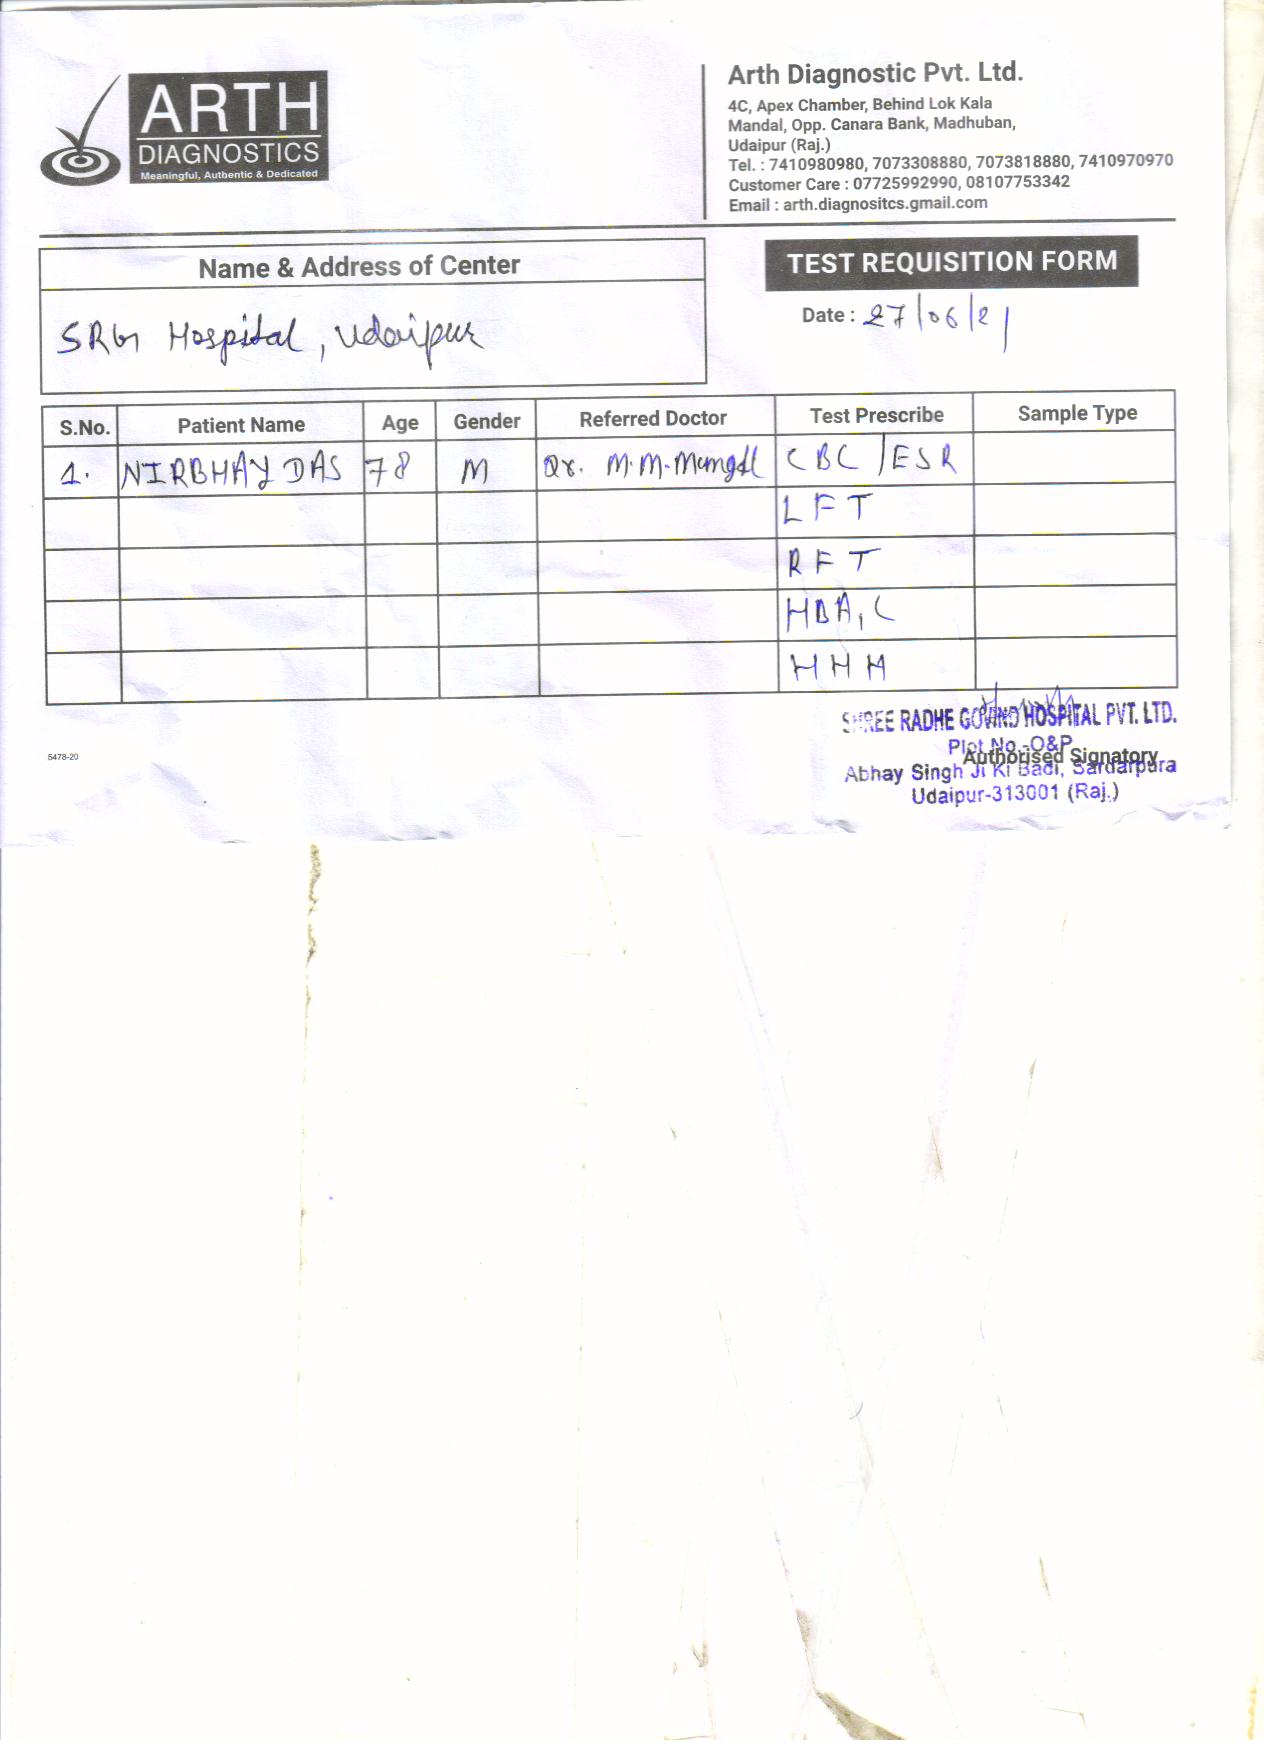 ARTH
DIAGNOSTICS
Meaningful, Authentic & Dedicated
Arth Diagnostic Pvt. Ltd.
4C, Apex Chamber, Behind Lok Kala
Mandal, Opp. Canara Bank, Madhuban,
Udaipur (Raj.)
Tel. : 7410980980, 7073308880, 7073818880, 7410970970
Customer Care : 07725992990, 08107753342
Email : arth.diagnositcs.gmail.com
Name & Address of Center
SRG Hospital, Udaipur
TEST REQUISITION FORM
Date : 27/06/21
S.No. Patient Name Age Gender Referred Doctor Test Prescribe Sample Type
1. NIRBHAY DAS 78 M Dr. M.M. CBC/ESR
LFT
RFT
HBA1C
HHH
SHREE RADHE GOVIND HOSPITAL PVT. LTD.
Plot No.-O&P
Authorised Signatory
Abhay Singh Ji Ki Badi, Sardarpura
Udaipur-313001 (Raj.)
5478-20